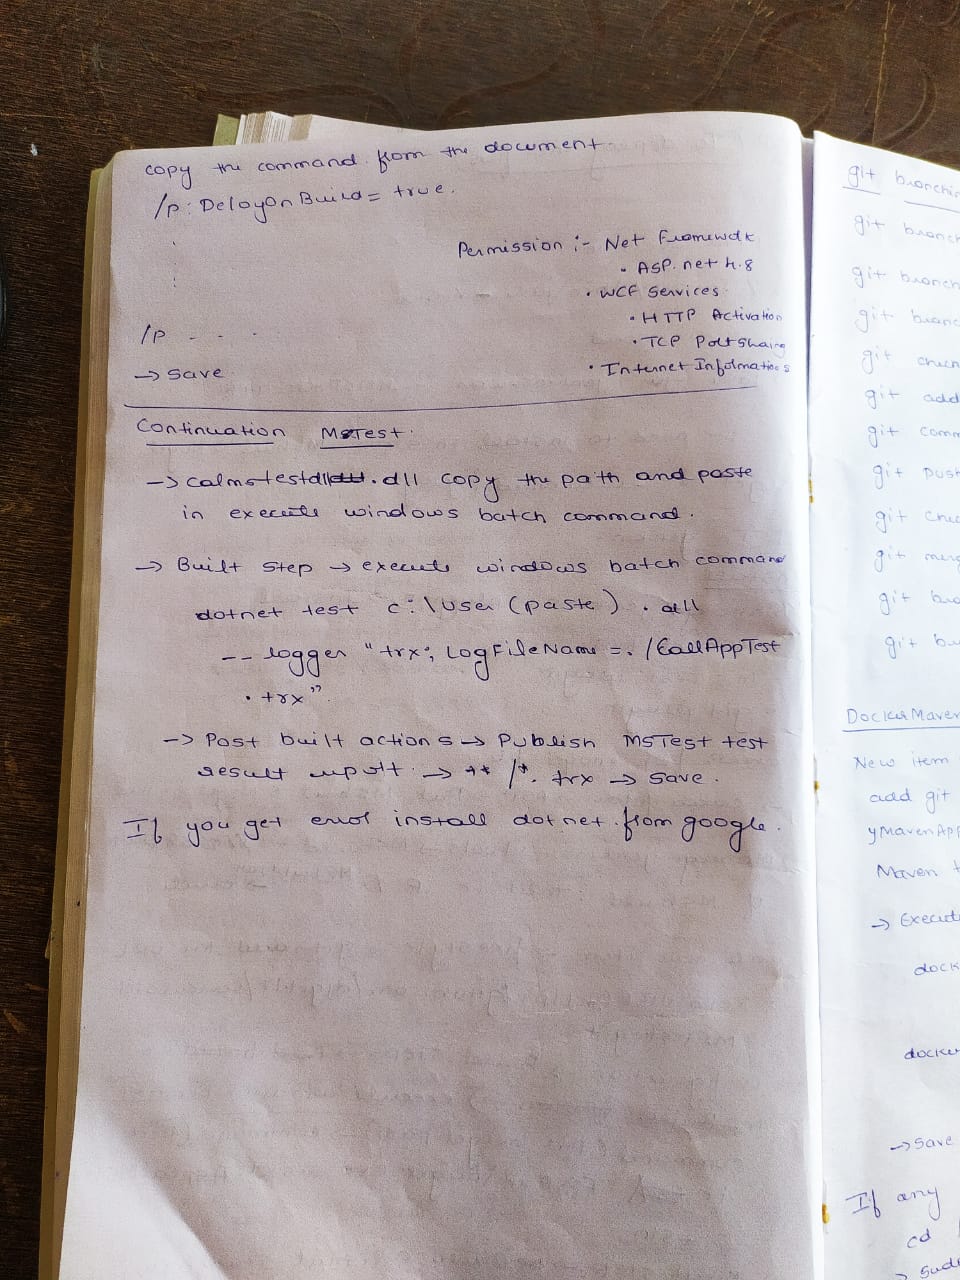 copy the command from the document
/p: DeloyOnBuild = true.
Permission :- Net Framework
• ASP. net 4.8
• WCF Services
• HTTP Activation
/p - -
• TCP Port Sharing
• Internet Informations
→ save
Continuation MSTest.
→ calmstestdll.dll copy the path and paste
in execute windows batch command.
→ Built Step → execute windows batch command
dotnet test c:\user (paste) . dll
-- logger "trx; LogFileName =. /CallAppTest
. trx"
→ Post built actions → Publish MSTest test
result report. → ** /*. trx → save.
If you get error install dotnet from google.
git
git
git
git
git
git add
git
git push
git
git
git
git
Docker Maven
New item
add git
yMavenApp
Maven
→
docker
→ Save
If any
cd
→